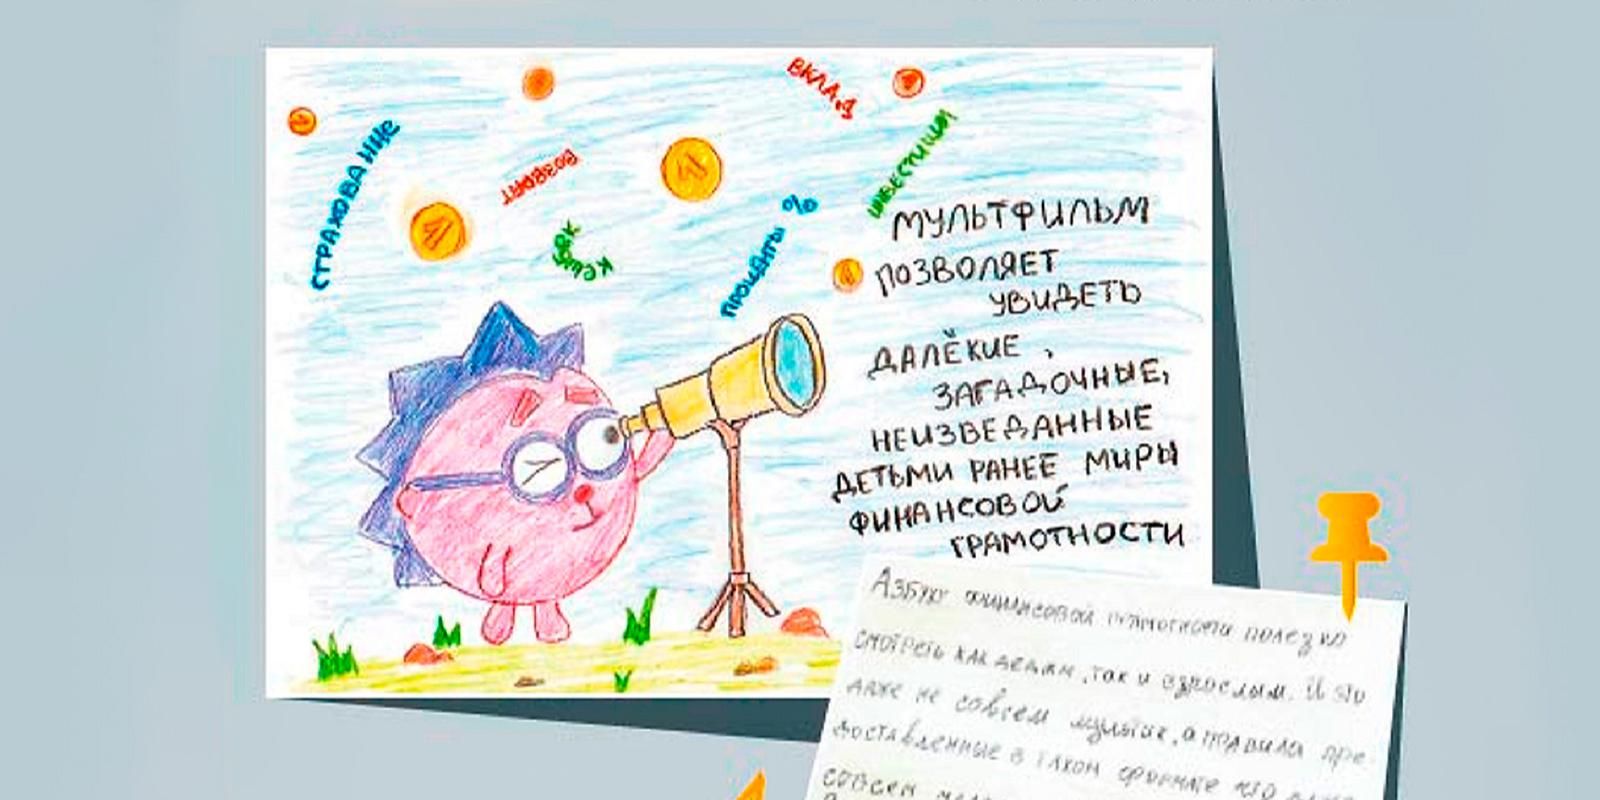 СТРАХОВАНИЕ
ВОЗВРАТ
КЕШБЭК
ПРОЦЕНТЫ %
ВКЛАД
ИНВЕСТИЦИИ
МУЛЬТФИЛЬМ
ПОЗВОЛЯЕТ
УВИДЕТЬ
ДАЛЁКИЕ,
ЗАГАДОЧНЫЕ,
НЕИЗВЕДАННЫЕ
ДЕТЬМИ РАНЕЕ МИРЫ
ФИНАНСОВОЙ
ГРАМОТНОСТИ
Азбуку финансовой грамотности полезно
смотреть как детям, так и взрослым. И это
даже не совсем мультик, а правила пре
доставленные в таком формате что
совсем